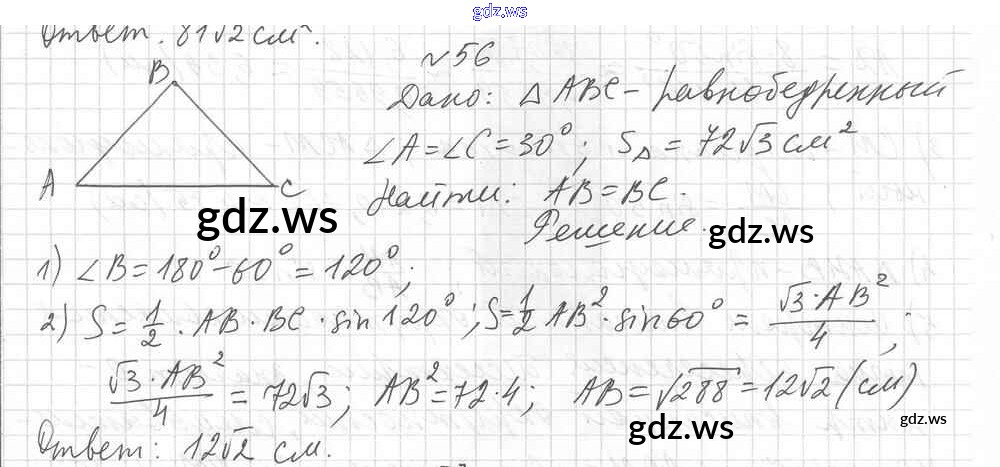 gdz.ws
Ответ. 81√2 см².
№56
Дано: △ABC – равнобедренный
∠A=∠C=30°; S△=72√3 см²
Найти: AB=BC.
Решение.
B
A
C
gdz.ws
gdz.ws
1) ∠B=180°-60°=120°;
2) S=1/2·AB·BC·sin120°; S=1/2 AB²·sin60°=√3·AB²/4;
√3·AB²/4=72√3; AB²=72·4; AB=√288=12√2 (см)
gdz.ws
gdz.ws
Ответ: 12√2 см.